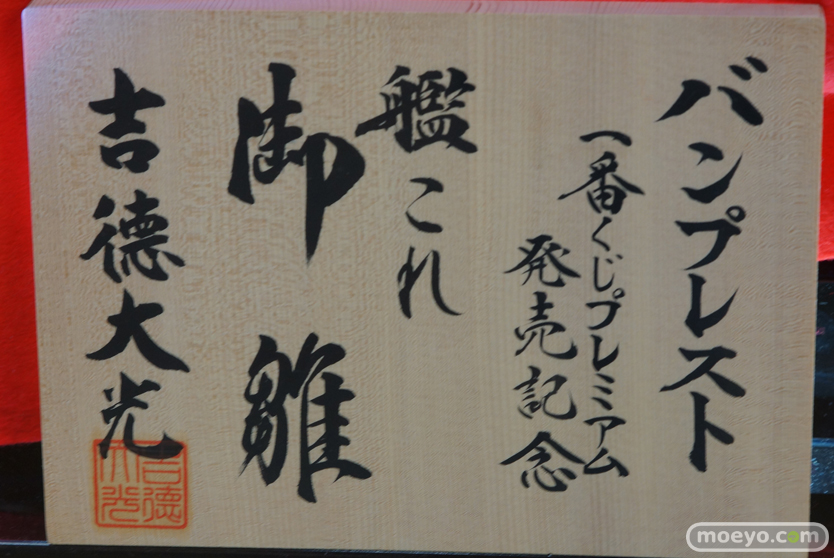 バンプレスト
一番くじプレミアム
発売記念
艦これ
御雛
吉德大光
吉德大光
moeyo.com